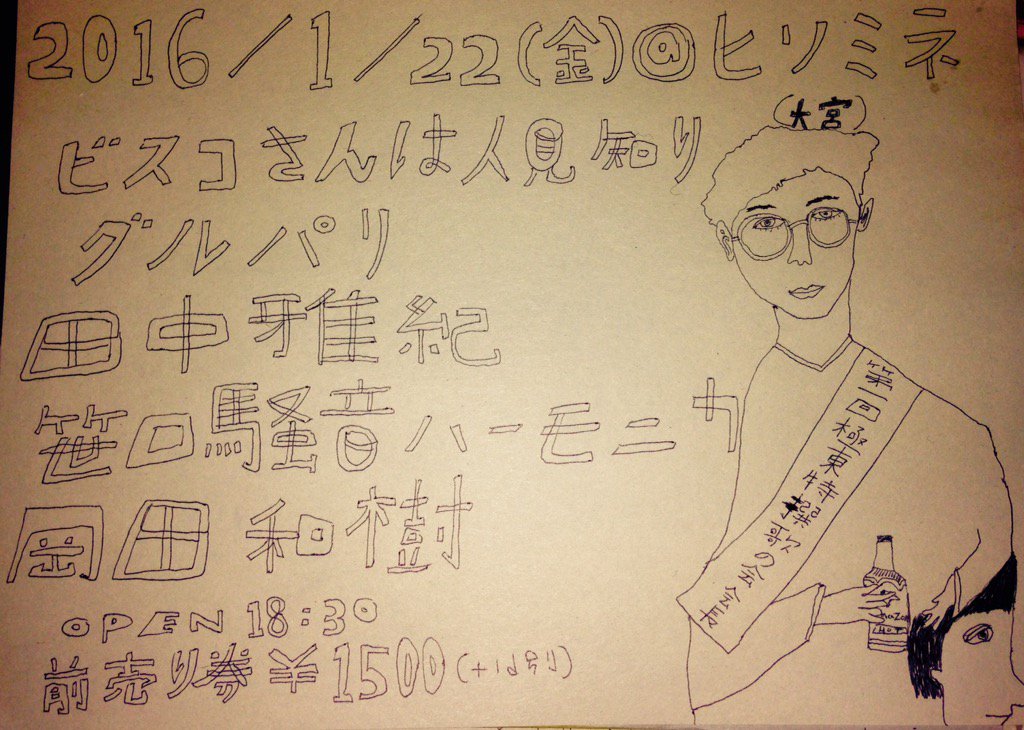 2016/1/22(金)@ヒソミネ
(大宮)
ビスコさんは人見知り
グルパリ
田中雅紀
笹口騒音ハーモニカ
岡田和樹
OPEN 18:30
前売り券¥1500(+1d別り)
第一回極東特撰歌の会会長
HOT